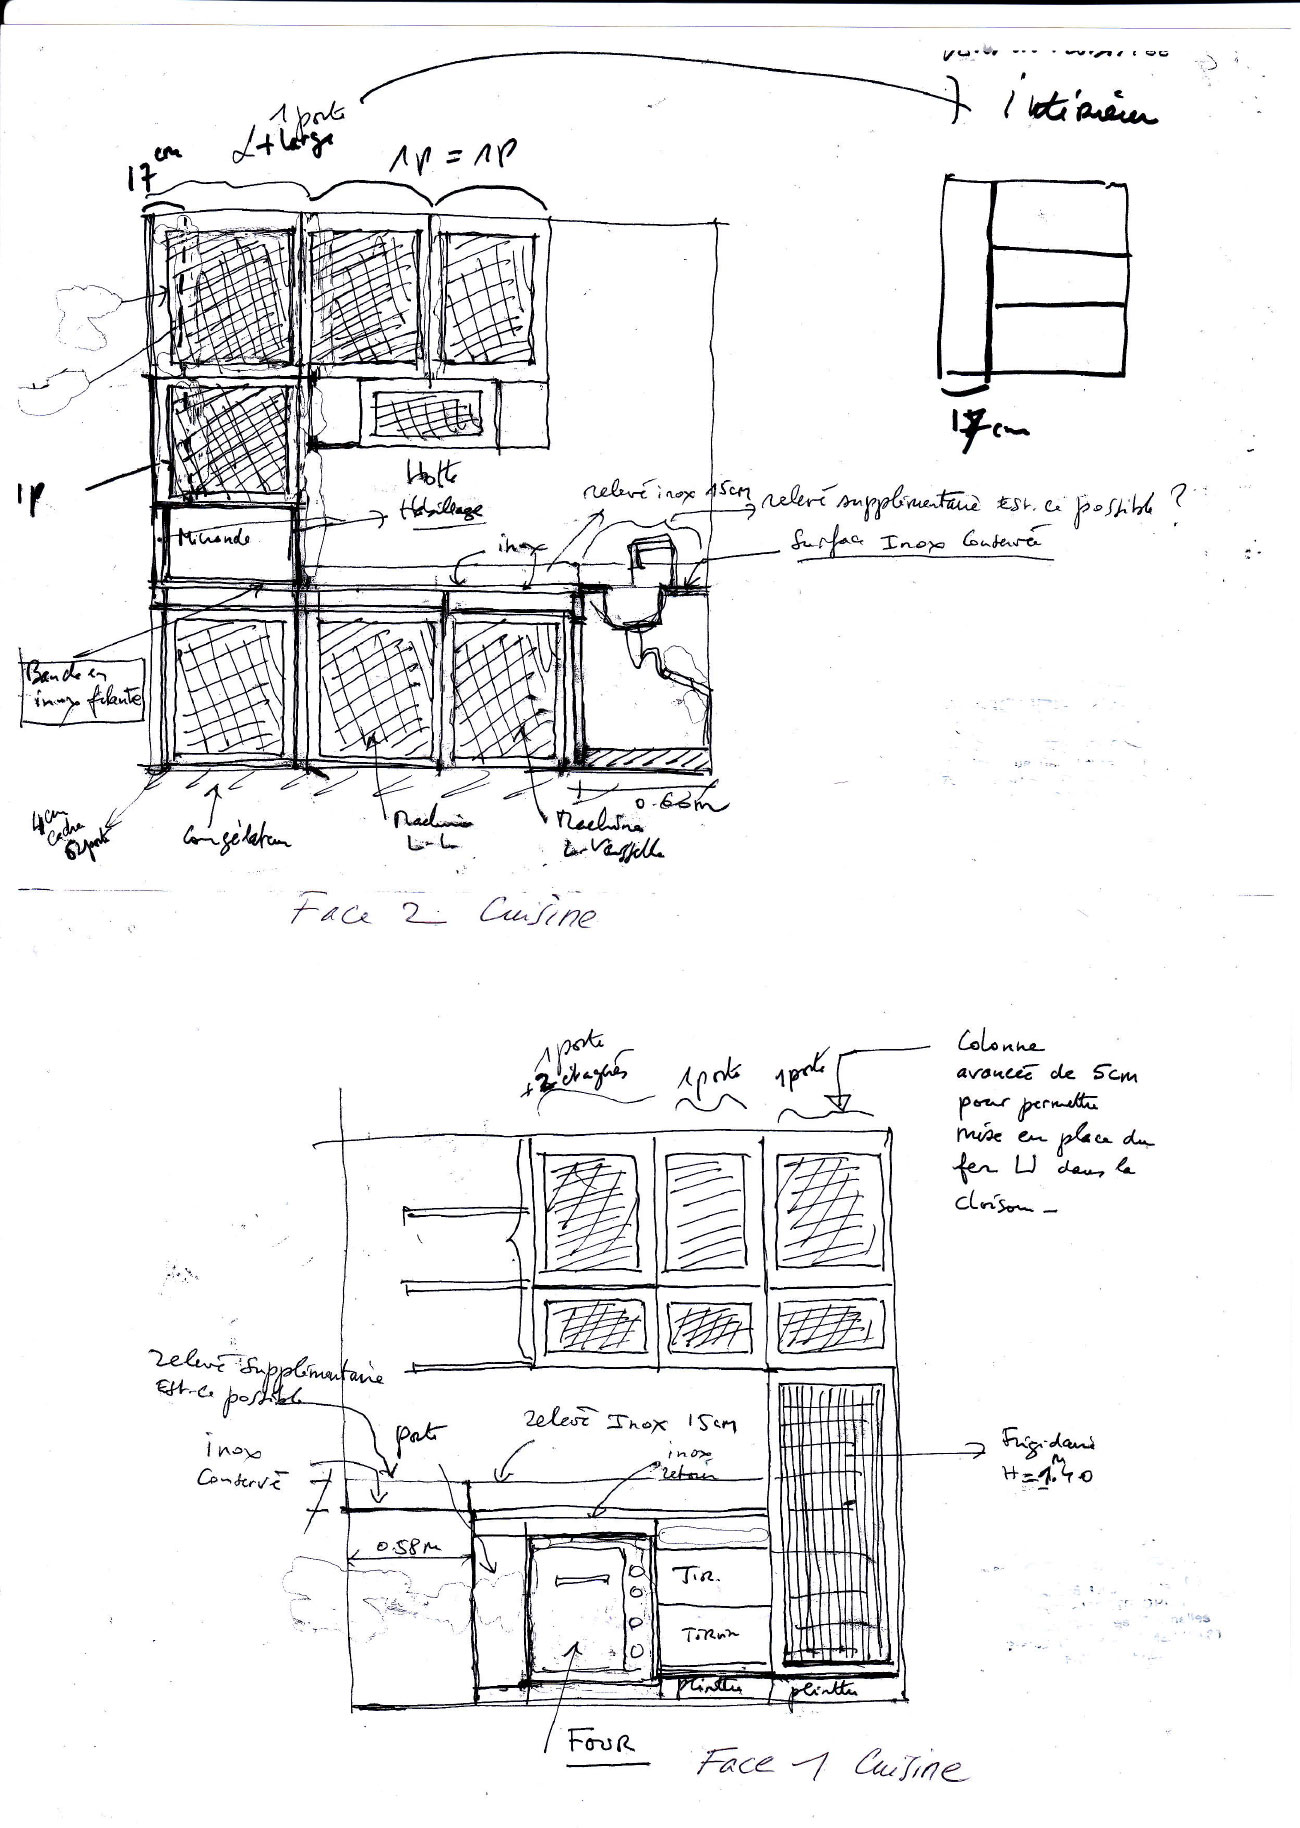 intérieur
1 porte
+ large
17 cm
1P = 1P
17 cm
1P
Hotte
Habillage
relevé inox 15cm
relevé supplémentaire Est-ce possible ?
Surface Inox Conservée
inox
Bande en
inox filante
0.66m
4cm
cadre
Congélateur
Machine
L-L
Machine
L-Vaisselle
Face 2 Cuisine
1 porte
+ 2 étagères
1 porte
1 porte
Colonne
avancée de 5cm
pour permettre
mise en place du
fer U dans la
cloison –
relevé supplémentaire
Est-ce possible
relevé Inox 15cm
porte
inox
Conservé
inox
retour
Frigidaire
H = 1.40
M
0.58m
Tir.
Tiroir
plinthe
plinthe
FOUR
Face 1 Cuisine